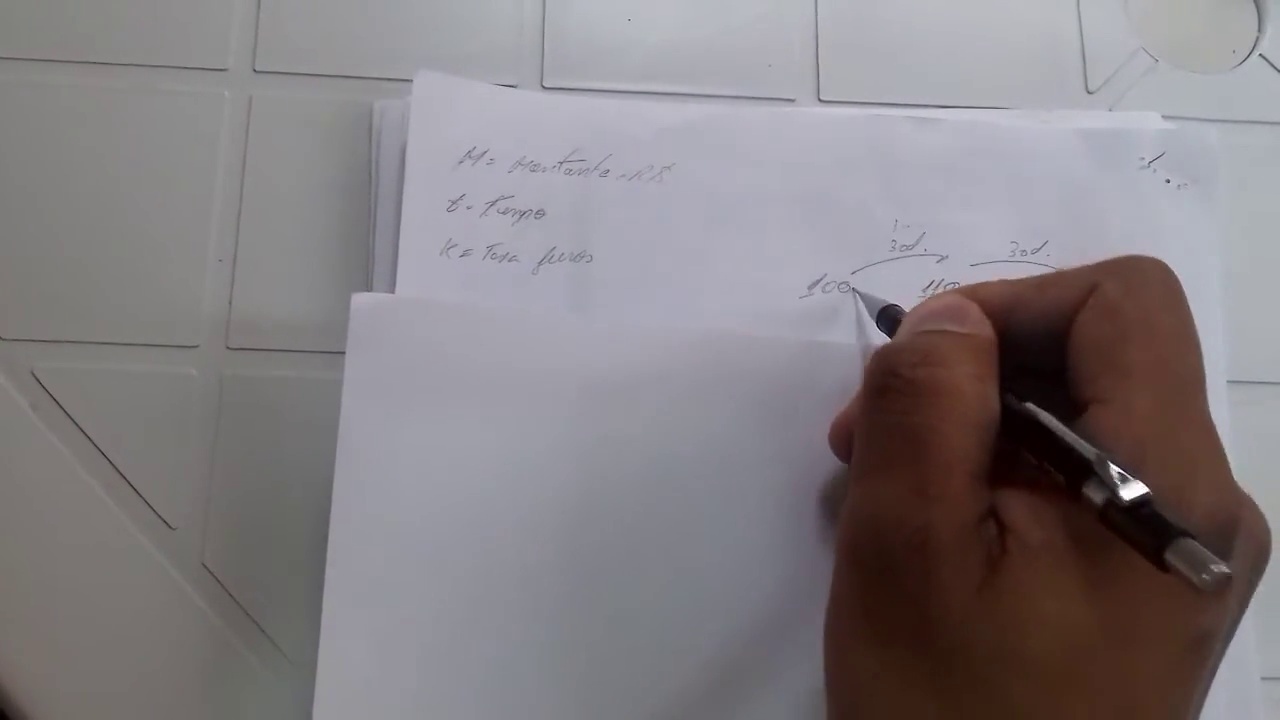 M = Montante R$
t = Tiempo
K = Tasa juros
30d. 30d.
100 110